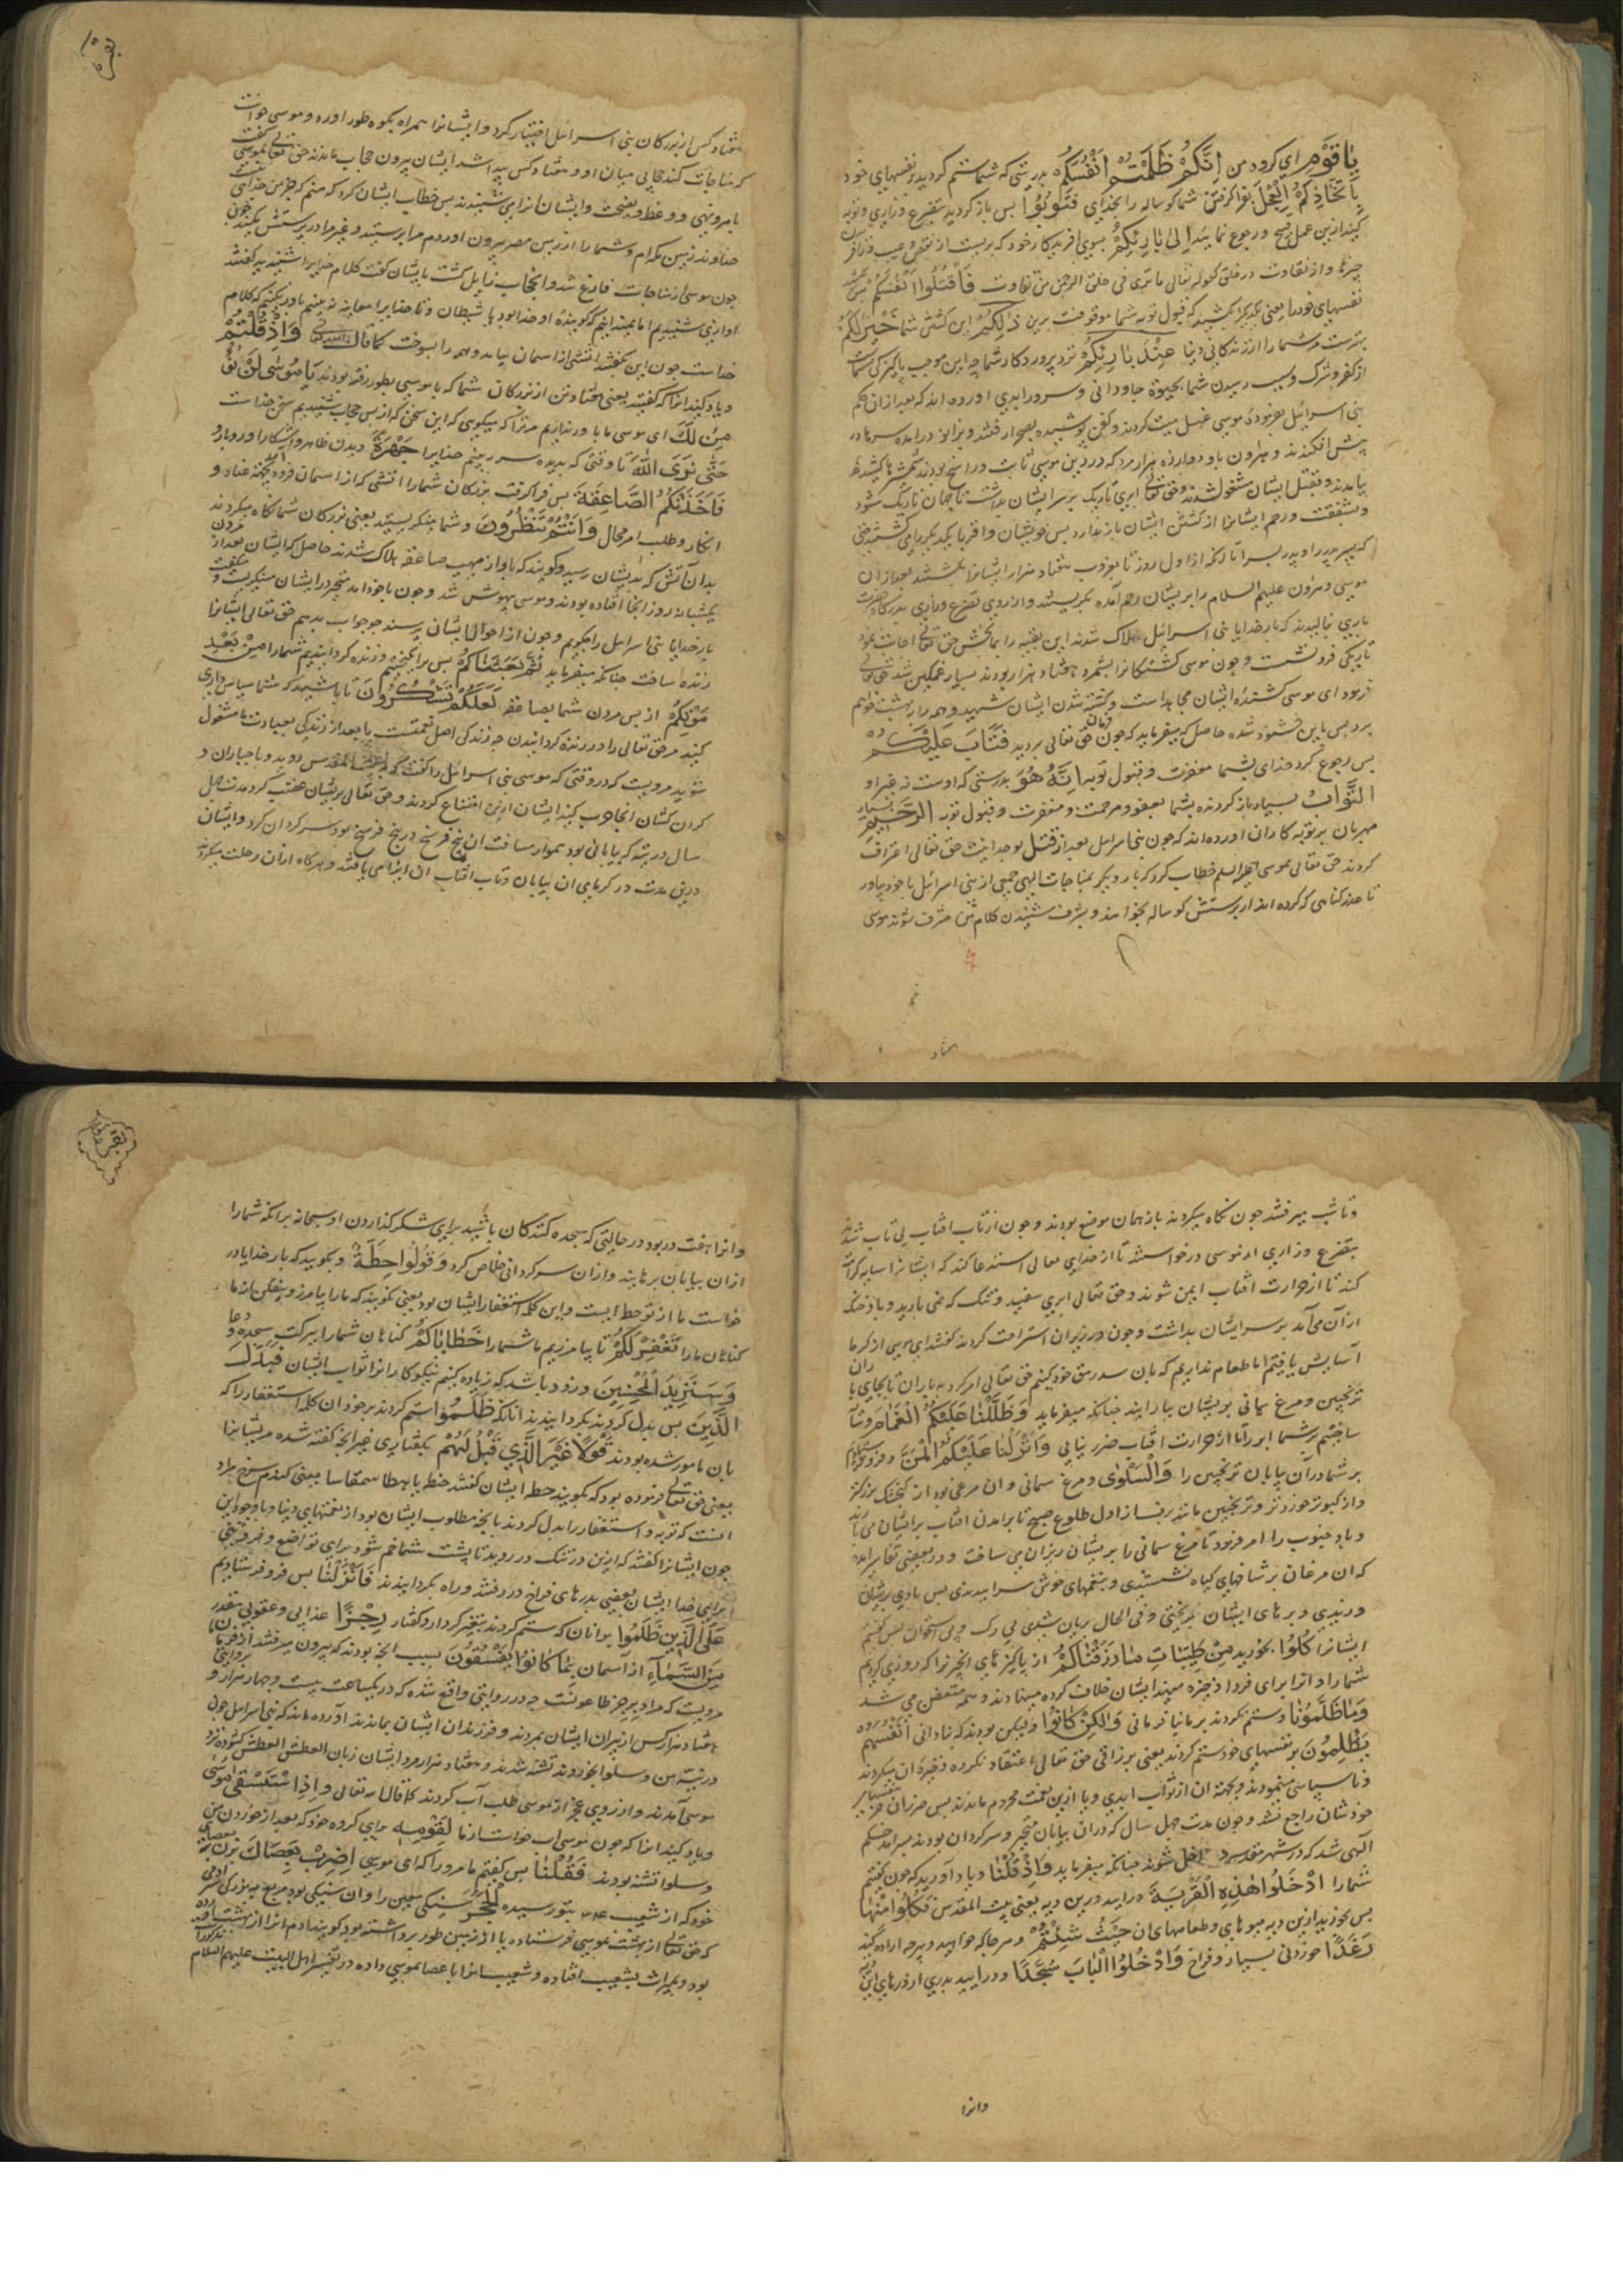 یَا قَوْمِ ای کروه من اِنَّکُمْ ظَلَمْتُمْ اَنْفُسَکُمْ بدرستی که شما ستم کردید بر نفسهای خود
بِاتِّخَاذِکُمُ الْعِجْلَ بفرا کرفتن شما کوساله را بخدای فَتُوبُوا پس باز کردید بتضرع و زاری و توبه
کنید ازین عمل قبیح و رجوع نمایید اِلٰی بَارِئِکُمْ بسوی افریدکار خود که بریست از نقص و عیب
چیزها و از تفاوت در خلق کقوله تعالی ماتری فی خلق الرحمن من تفاوت فَاقْتُلُوا اَنْفُسَکُمْ پس بکشید
نفسهای خود را یعنی یکدیکر را بکشید که قبول توبه شما موقوفست برین ذٰلِکُمْ این کشتن شما خَیْرٌ لَکُمْ
بهترست مر شما را از زندکانی دنیا عِنْدَ بَارِئِکُمْ نزد پروردکار شما چه این موجب پاکیزکی شماست
از کفر و شرک و سبب رسیدن شما بحیوة جاودانی و سرور ابدی اورده اند که بعد از ان حکم
بنی اسرائیل بفرمودهٔ موسی غسل میت کردند و کفن پوشیده بصحرا رفتند و بزانو درامده سرها در
پیش افکندند و هارون با دوازده هزار مرد که در دین موسی ثابت و راسخ بودند شمشیرها کشیده
بیامدند و بقتل ایشان مشغول شدند و حق تعالی ابری تاریک بر سر ایشان بداشت تا جهان تاریک شود
و شفقت و رحم ایشانرا از کشتن ایشان باز ندارد پس خویشان و اقربا یکدیکر را می کشتند حتی
که پسر پدر را و پدر پسر را تا انکه از اول روز تا بغروب هفتاد هزار ایشانرا بکشتند بعد از ان
موسی و هرون علیهم السلام را بر ایشان رحم آمده بکریستند و از روی تضرع و زاری بدرکاه حضرت
باری بنالیدند که بار خدایا بنی اسرائیل هلاک شدند این بقیه را بما بخش حق تعالی اجابت نمود
تاریکی فرو نشست و چون موسی کشتکانرا بشمرد هفتاد هزار بودند بسیار غمکین شد حق تعالی
فرمود ای موسی کشندهٔ ایشان مجاهد است و کشته شدن ایشان شهید و همه را به بهشت خواهم
برد پس باین خشنود شده حاصل که میفرماید که چون فرمان حق تعالی بردید فَتَابَ عَلَیْکُمْ
پس رجوع کرد خدای بشما مغفرت و قبول توبه اِنَّهُ هُوَ بدرستی که اوست نه غیر او
التَّوَّابُ بسیار باز کردنده بشما بعفو و مرحمت و مغفرت و قبول توبه الرَّحِیمُ بسیار
مهربان بر توبه کاران اورده اند که چون بنی اسرایل بعد از قتل بوحدانیت حق تعالی اعتراف
کردند حق تعالی بموسی علیه السلم خطاب کرد که بار دیکر بمناجات الهی جمعی از بنی اسرائیل با خود بیاور
تا عذر کناهی که کرده اند از پرستش کوساله بخواهند و بشرف شنیدن کلام من مشرف شوند موسی
هفتاد
بقره
هفتاد کس از بزرکان بنی اسرائیل اختیار کرد و ایشانرا همراه بکوه طور اورد و موسی خواست
که مناجات کند حجابی میان او و هفتاد کس پیدا شد ایشان بیرون حجاب ماندند حق تعالی بموسی سخن کفت
بامر و نهی و وعظ و نصیحت و ایشان انرا می شنیدند پس خطاب ایشان کرد که منم که جز من خدای نیست
خداوند زمین مکه ام و شما را از زمین مصر بیرون اوردم مرا پرستید و غیر مرا در پرستش مکنید
چون موسی از مناجات فارغ شد و انحجاب زایل کشت بایشان کفت کلام خدایرا شنیدید کفتند
اوازی شنیدیم اما نمیدانیم که کویندهٔ او خدا بود یا شیطان و تا خدایرا معاینه نه بینیم باور نکنیم که کلام
خداست چون این بکفتند اتشی از اسمان بیامد و همه را بسوخت کما قال الله تعالی وَاِذْ قُلْتُمْ
و یاد کنید انرا که کفتید یعنی هفتاد تن از بزرکان شما که با موسی بطور رفته بودند یَا مُوسٰی لَنْ نُؤْ
مِنَ لَکَ ای موسی ما باور نداریم مر ترا که میکویی که این سخن که از پس حجاب شنیدیم سخن خداست
حَتّٰی نَرَی اللّٰهَ تا وقتی که بدیده سر ببینیم خدایرا جَهْرَةً دیدن ظاهر و اشکارا و روبارو
فَاَخَذَتْکُمُ الصَّاعِقَةُ پس فرا کرفت بزرکان شما را اتشی که از اسمان فرود امد بجهته عناد و
انکار و طلب امر محال وَاَنْتُمْ تَنْظُرُونَ و شما مینکریستید یعنی بزرکان شما نکاه میکردند
بدان آتش که بدیشان رسید و کویند که باواز مهیب صاعقه هلاک شدند حاصل که ایشان بعد از مردن
یکشبانه روز انجا افتاده بودند و موسی بیهوش شد و چون باخود امد متحیر در ایشان مینکریست و میکفت
بار خدایا بنی اسرایل را چکویم و چون از احوال ایشان پرسند چه جواب بدهم حق تعالی ایشانرا
زنده ساخت چنانکه میفرماید ثُمَّ بَعَثْنَاکُمْ پس برانکیختیم و زنده کردانیدیم شما را مِنْ بَعْدِ
مَوْتِکُمْ از پس مردن شما بصاعقه لَعَلَّکُمْ تَشْکُرُونَ تا باشید که شما سپاس داری
کنید مر حق تعالی را در زنده کردانیدن چه زندکی اصل نعمتست یا بعد از زندکی بعبادت ما مشغول
شوید مرویست که در وقتی که موسی بنی اسرائیل را کفت که به بیت المقدس روید و با جباران و
کردن کشان انجا حرب کنید ایشان ازین امتناع کردند و حق تعالی بر ایشان غضب کرد و مدت چهل
سال در تیه که بیابانی بود هموار مسافت ان پنج فرسخ در پنج فرسخ بود سرکردان کرد و ایشان
درین مدت در کرمای ان بیابان و تاب افتاب ان ایذا می یافتند و هرکاه از ان رحلت میکردند
و تا شب میرفتند چون نکاه میکردند باز بهمان موضع بودند و چون از تاب افتاب بی تاب شدند
بتضرع و زاری از موسی درخواستند تا از خدای تعالی استدعا کند که ایشانرا سایه کرامت
کند تا از حرارت افتاب ایمن شوند و حق تعالی ابری سفید و تنک که نمی بارید و باد خنک
از آن می آمد بر سر ایشان بداشت و چون در زیر ان استراحت کردند کفتند ای موسی از کرما
آسایش یافتیم اما طعام نداریم که بان سد رمق خود کنیم حق تعالی امر کرد به باران تا بجای باران
ترنجبین و مرغ سمانی بر ایشان بیارایند چنانکه میفرماید وَظَلَّلْنَا عَلَیْکُمُ الْغَمَامَ و سایه
ساختیم بر شما ابر را تا از حرارت افتاب ضرر نیابی وَاَنْزَلْنَا عَلَیْکُمُ الْمَنَّ و فرو فرستادیم
بر شما در ان بیابان ترنجبین را وَالسَّلْوٰی و مرغ سمانی و ان مرغی بود از کنجشک بزرکتر
و از کبوتر خوردتر و ترنجبین مانند برف از اول طلوع صبح تا برامدن افتاب بر ایشان می بارید
و باد جنوب را امر فرمود تا مرغ سمانی را بر ایشان ریزان می ساخت و در بعضی تفاسیر امده
که ان مرغان بر شاخهای کیاه نشستندی و بنغمهای خوش سراییدندی پس بادی بر ایشان
وزیدی و پرهای ایشان بریختی و فی الحال بریان شدی بی رک و بی استخوان پس کفتیم
ایشانرا کُلُوا بخورید مِنْ طَیِّبَاتِ مَا رَزَقْنَاکُمْ از پاکیزهای انچیزها که روزی کردیم
شما را و انرا برای فردا ذخیره منهید ایشان خلاف کرده مینهادند و همه متعفن می شد
وَمَا ظَلَمُونَا و ستم نکردند بر ما بنا فرمانی وَلٰکِنْ کَانُوا و لیکن بودند که بنادانی اَنْفُسَهُمْ
یَظْلِمُونَ بر نفسهای خود ستم کردند یعنی بر رزاقی حق تعالی اعتقاد نکرده ذخیره ان میکردند
و ناسپاسی مینمودند و بجهته ان از ثواب ابدی و یا ازین نعمت محروم ماندند پس ضرر ان بنفسهای
خودشان راجع شد و چون مدت چهل سال که در ان بیابان متحیر و سرکردان بودند بسر امد حکم
الهی شد که در شهر مقدسه داخل شوند چنانکه میفرماید وَاِذْ قُلْنَا و یاد آورید که چون کفتیم
شما را ادْخُلُوا هٰذِهِ الْقَرْیَةَ درایید درین دیه یعنی بیت المقدس فَکُلُوا مِنْهَا
پس بخورید ازین دیه میوهای و طعامهای ان حَیْثُ شِئْتُمْ و هر جا که خواهید و هر چه اراده کنید
رَغَدًا خوردنی بسیار و فراخ وَادْخُلُوا الْبَابَ سُجَّدًا و درایید بدری از درهای این
وانرا
بقره
وانرا هفت در بود در حالتی که سجده کنندکان باشید برای شکر کذاردن او سبحانه برانکه شما را
از ان بیابان برهانید و از ان سرکردانی خلاص کرد وَقُولُوا حِطَّةٌ و بکویید که بار خدایا در
خواست ما از تو حطه است و این کلمه استغفار ایشان بود یعنی بکویند که ما را بیامرز و بیفکن از ما
کناهان ما را نَغْفِرْ لَکُمْ تا بیامرزیم ما شما را خَطَایَاکُمْ کناهان شما را ببرکت سجده و دعا
وَسَنَزِیدُ الْمُحْسِنِینَ و زود باشد که زیاده کنیم نیکو کارانرا ثواب ایشان فَبَدَّلَ
الَّذِینَ پس بدل کردند بکردانیدند انانکه ظَلَمُوا ستم کردند بر خود ان کلمه استغفار را که
بان مامور شده بودند قَوْلًا غَیْرَ الَّذِی قِیلَ لَهُمْ بکفتاری غیر انچه کفته شده مر ایشانرا
یعنی حق تعالی فرموده بود که بکویید حطه ایشان کفتند حنطه یا بهطا سمقاسا یعنی کندم سرخ مراد
انست که توبه و استغفار را بدل کردند بانچه مطلوب ایشان بود از نعمتهای دنیا و با وجود این
چون ایشانرا کفتند که ازین در تنک در روید تا پشت شما خم شود برای تواضع و فروتنی
برای خدا ایشان بعضی بدرهای فراخ در رفتند و راه بکردانیدند فَاَنْزَلْنَا پس فرو فرستادیم
عَلَی الَّذِینَ ظَلَمُوا بر انان که ستم کردند بتغیر کردار و کفتار رِجْزًا عذابی و عقوبتی مقدر
مِنَ السَّمَاءِ از آسمان بِمَا کَانُوا یَفْسُقُونَ بسبب انچه بودند که بیرون میرفتند از فرمان
مرویست که مراد برجز طاعونست چه در روایتی واقع شده که در یکساعت بیست و چهار هزار و بروایتی
هفتاد هزار کس از پیران ایشان بمردند و فرزندان ایشان بماندند آورده اند که بنی اسرایل چون
در تیه من و سلوا بخوردند تشنه شدند و هفتاد هزار مرد ایشان زبان العطش العطش کشوده نزد
موسی آمدند و از روی عجز از موسی طلب آب کردند کما قال الله تعالی وَاِذِ اسْتَسْقٰی مُوسٰی
و یاد کنید انرا که چون موسی اب خواست از ما لِقَوْمِهِ برای کروه خود که بعد از خوردن من
و سلوا تشنه بودند فَقُلْنَا پس کفتیم ما مر او را که ای موسی اضْرِبْ بِعَصَاکَ بزن بعصای
خود که از شعیب بتو رسیده الْحَجَرَ سنکی معین را و ان سنکی بود مربع به بزرکی سر ادمی
که حق تعالی از بهشت بموسی فرستاده یا از زمین طور برداشته بود کویند ادم انرا از بهشت اورده
بود و بمیراث بشعیب افتاده و شعیب انرا با عصا بموسی داده در تفسیر اهل البیت علیهم السلام